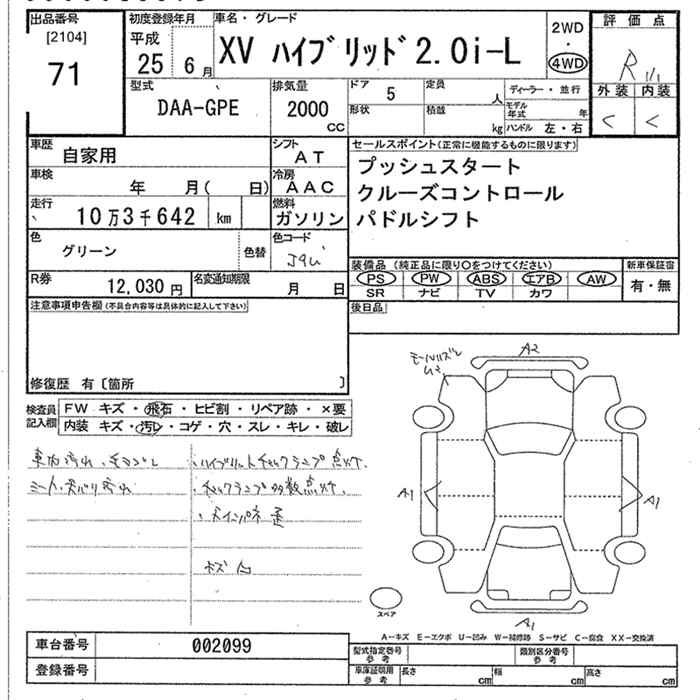 出品番号
[2104]
71
初度登録年月
平成
25 6月
車名・グレード
XV ハイブリッド 2.0i-L
2WD
・
4WD
評価点
R
外装 内装
型式
DAA-GPE
排気量
2000
CC
ドア 5
定員
人
形状
積載
kg
ディーラー・並行
モデル年式 年
ハンドル 左・右
車歴
自家用
シフト
AT
車検
年 月( 日)
冷房
AAC
走行
10万3千642 km
燃料
ガソリン
色
グリーン
色替
色コード
R券
12,030円
名変通知期限
月 日
セールスポイント(正常に機能するものに限ります)
プッシュスタート
クルーズコントロール
パドルシフト
装備品 (純正品に限り○をつけてください)
PS PW ABS エアB AW
SR ナビ TV カワ
新車保証書
有・無
後日品
注意事項申告欄(不具合内容等は具体的に記入して下さい)
修復歴 有〔箇所 〕
検査員記入欄
FW キズ・飛石・ヒビ割・リペア跡・×要
内装 キズ・汚レ・コゲ・穴・スレ・キレ・破レ
・ハイブリットチェックランプ点灯.
・チェックランプ多数点灯.
A2
A1
A1
A1
スペア
A-キズ E-エクボ U-凹み W-補修跡 S-サビ C-腐食 XX-交換済
車台番号 002099
登録番号
型式指定番号 参考
類別区分番号 参考
車庫証明用 参考
長さ cm
幅 cm
高さ cm